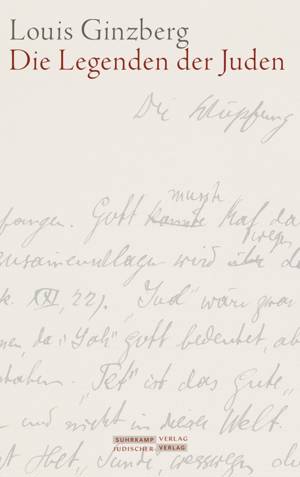 Louis Ginzberg
Die Legenden der Juden
Die Schöpfung
mußte
fangen. Gott konnte Kaf da
wegen
zusammenschlagen wird über de
k. XXI, 22). "Jud" wäre zwar
nen, da "Jah" Gott bedeutet, ab
haben. "Tet" ist das Gute,
und nicht in dieser Welt.
Het, Sünde, weswegen die
SUHRKAMP VERLAG
JÜDISCHER VERLAG